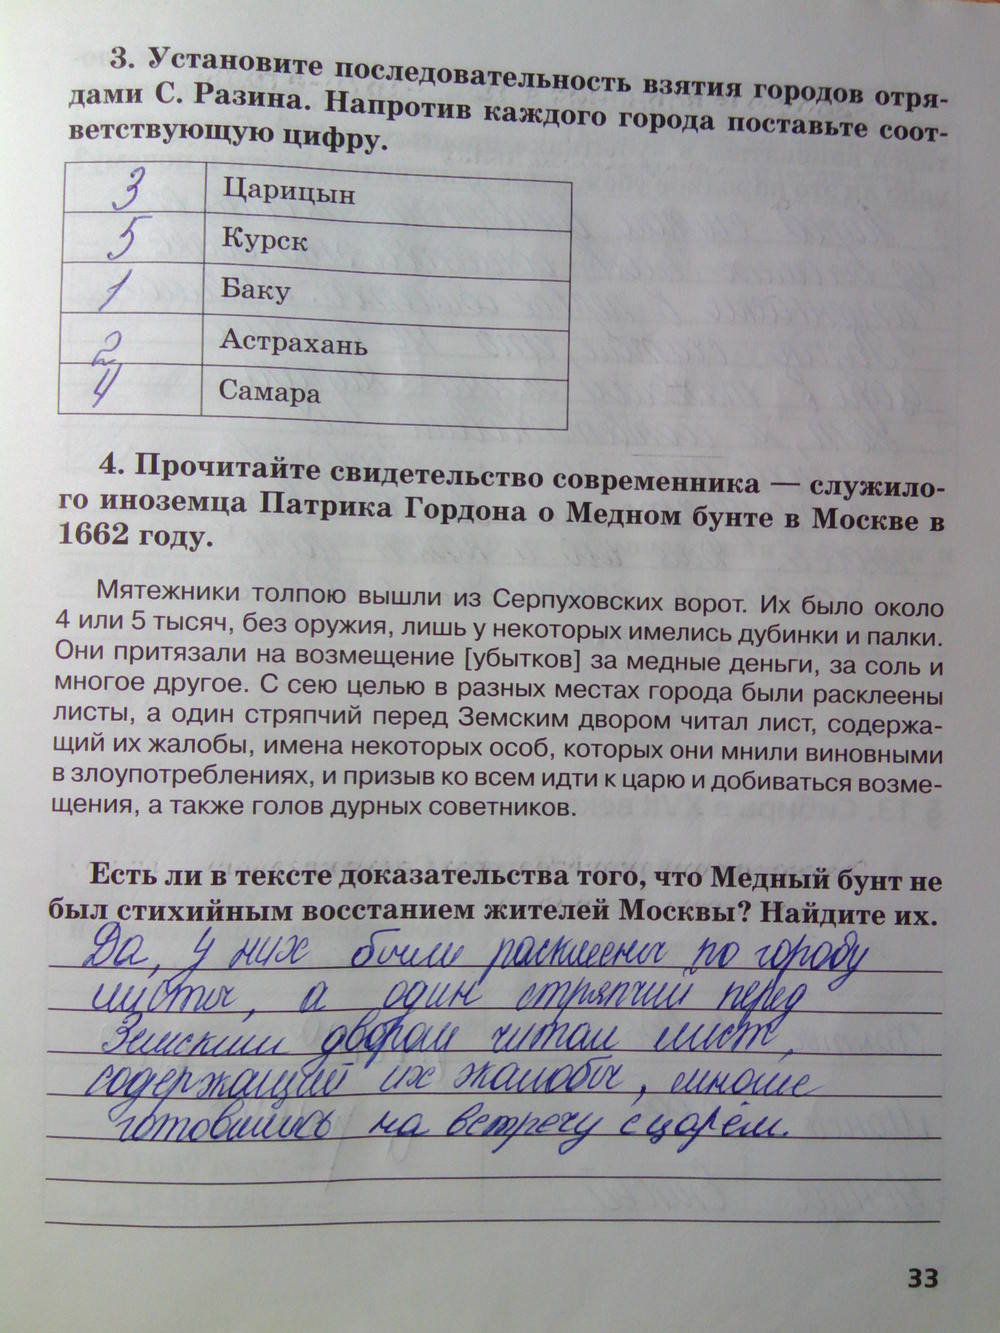 3. Установите последовательность взятия городов отря-
дами С. Разина. Напротив каждого города поставьте соот-
ветствующую цифру.
3 Царицын
5 Курск
1 Баку
2 Астрахань
4 Самара
4. Прочитайте свидетельство современника — служило-
го иноземца Патрика Гордона о Медном бунте в Москве в
1662 году.
Мятежники толпою вышли из Серпуховских ворот. Их было около
4 или 5 тысяч, без оружия, лишь у некоторых имелись дубинки и палки.
Они притязали на возмещение [убытков] за медные деньги, за соль и
многое другое. С сею целью в разных местах города были расклеены
листы, а один стряпчий перед Земским двором читал лист, содержа-
щий их жалобы, имена некоторых особ, которых они мнили виновными
в злоупотреблениях, и призыв ко всем идти к царю и добиваться возме-
щения, а также голов дурных советников.
Есть ли в тексте доказательства того, что Медный бунт не
был стихийным восстанием жителей Москвы? Найдите их.
Да, у них были расклеены по городу
листы, а один стряпчий перед
Земским двором читал лист,
содержащий их жалобы, многие
готовились на встречу с царём.
33